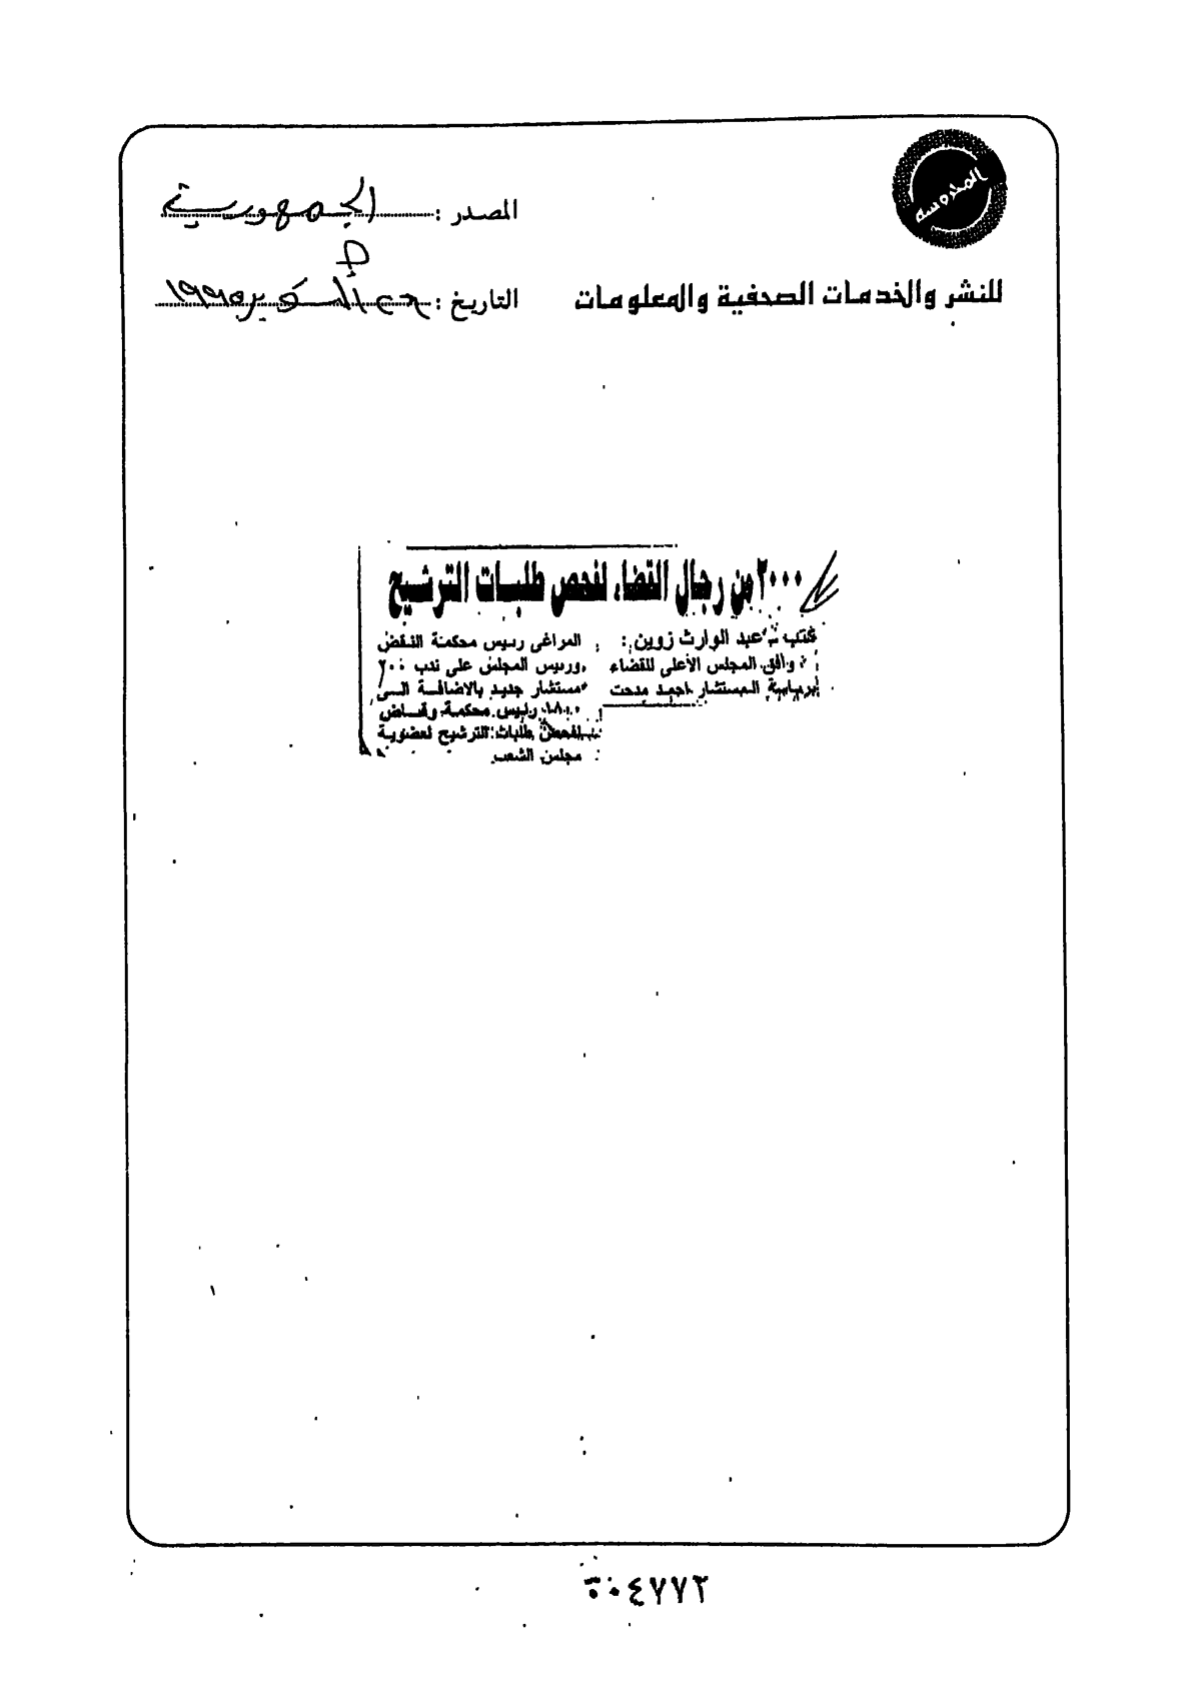 المحروسة
المصدر : الجمهورية
للنشر والخدمات الصحفية والمعلومات
التاريخ : أكتوبر ١٩٩٥
٢٠٠٠ من رجال القضاء لفحص طلبات الترشيح
كتب ـ عبد الوارث زوين :
وافق المجلس الأعلى للقضاء
برياسة المستشار احمد مدحت
المراغى رئيس محكمة النقض
ورئيس المجلس على ندب ٢٠٠
مستشار جديد بالاضافة الى
١٨٠٠ رئيس محكمة وقاض
لفحص طلبات الترشيح لعضوية
مجلس الشعب
٠٤٧٧٢